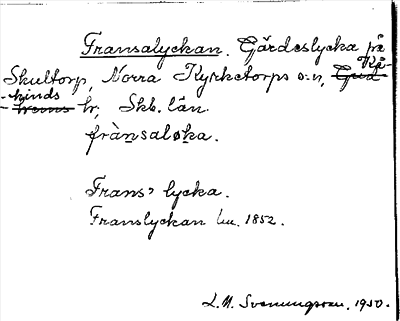 Fransalyckan. Gärdeslycka på
Skultorp, Norra Kyrketorps s:n, Gud Kå-
-kinds -hems hr, Skb. län.
frànsaløka.
Frans' lycka.
Franslyckan hu. 1852.
L.M. Svenungsson. 1950.